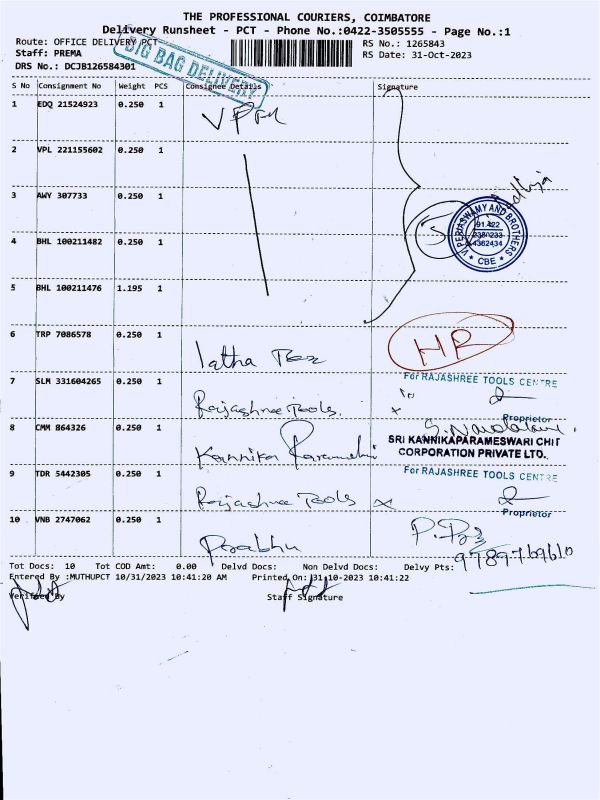 THE PROFESSIONAL COURIERS, COIMBATORE
Delivery Runsheet - PCT - Phone No.:0422-3505555 - Page No.:1
Route: OFFICE DELIVERY PCT
RS No.: 1265843
Staff: PREMA
RS Date: 31-Oct-2023
DRS No.: DCJB126584301
BIG BAG DELIVERY
S No Consignment No Weight PCS Consignee Details Signature
1 EDQ 21524923 0.250 1
2 VPL 221155602 0.250 1
3 AWY 307733 0.250 1
4 BHL 100211482 0.250 1
5 BHL 100211476 1.195 1
V PERIASWAMY AND BROTHERS
4362434
* CBE *
6 TRP 7086578 0.250 1 latha Tex HR
7 SLM 331604265 0.250 1 Rajashree Tools.
For RAJASHREE TOOLS CENTRE
Proprietor
8 CMM 864326 0.250 1 Kannika Parameshwari
SRI KANNIKAPARAMESWARI CHIT
CORPORATION PRIVATE LTO.
9 TDR 5442305 0.250 1 Rajashree Tools x
For RAJASHREE TOOLS CENTRE
Proprietor
10 VNB 2747062 0.250 1 Prabhu
9789769610
Tot Docs: 10 Tot COD Amt: 0.00 Delvd Docs: Non Delvd Docs: Delvy Pts:
Entered By :MUTHUPCT 10/31/2023 10:41:20 AM Printed On:31-10-2023 10:41:22
Verified By Staff Signature